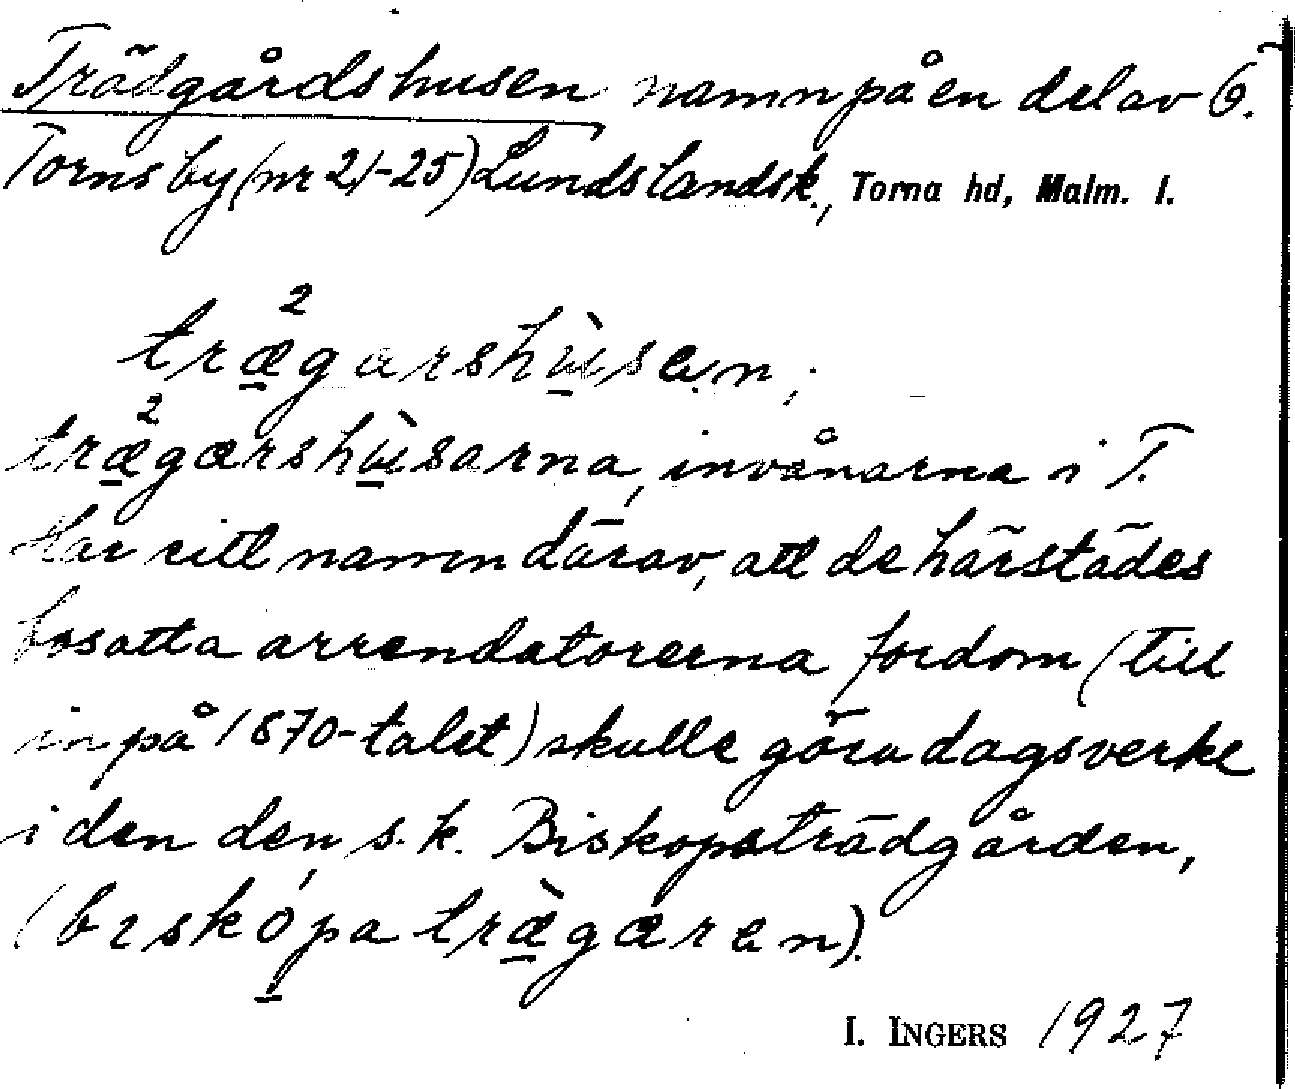 Trädgårdshusen namn på en del av Ö.
Torns by (nr 21-25) Lunds landsk., Torna hd, Malm. l.
2
trægarshùsen;
2
trægarshùsarna, invånarna i T.
Har sitt namn därav, att de härstädes
bosatta arrendatorerna fordom (till
in på 1870-talet) skulle göra dagsverke
i den den, s.k. Biskopsträdgården,
(biskópa trægaren).
I. INGERS 1927